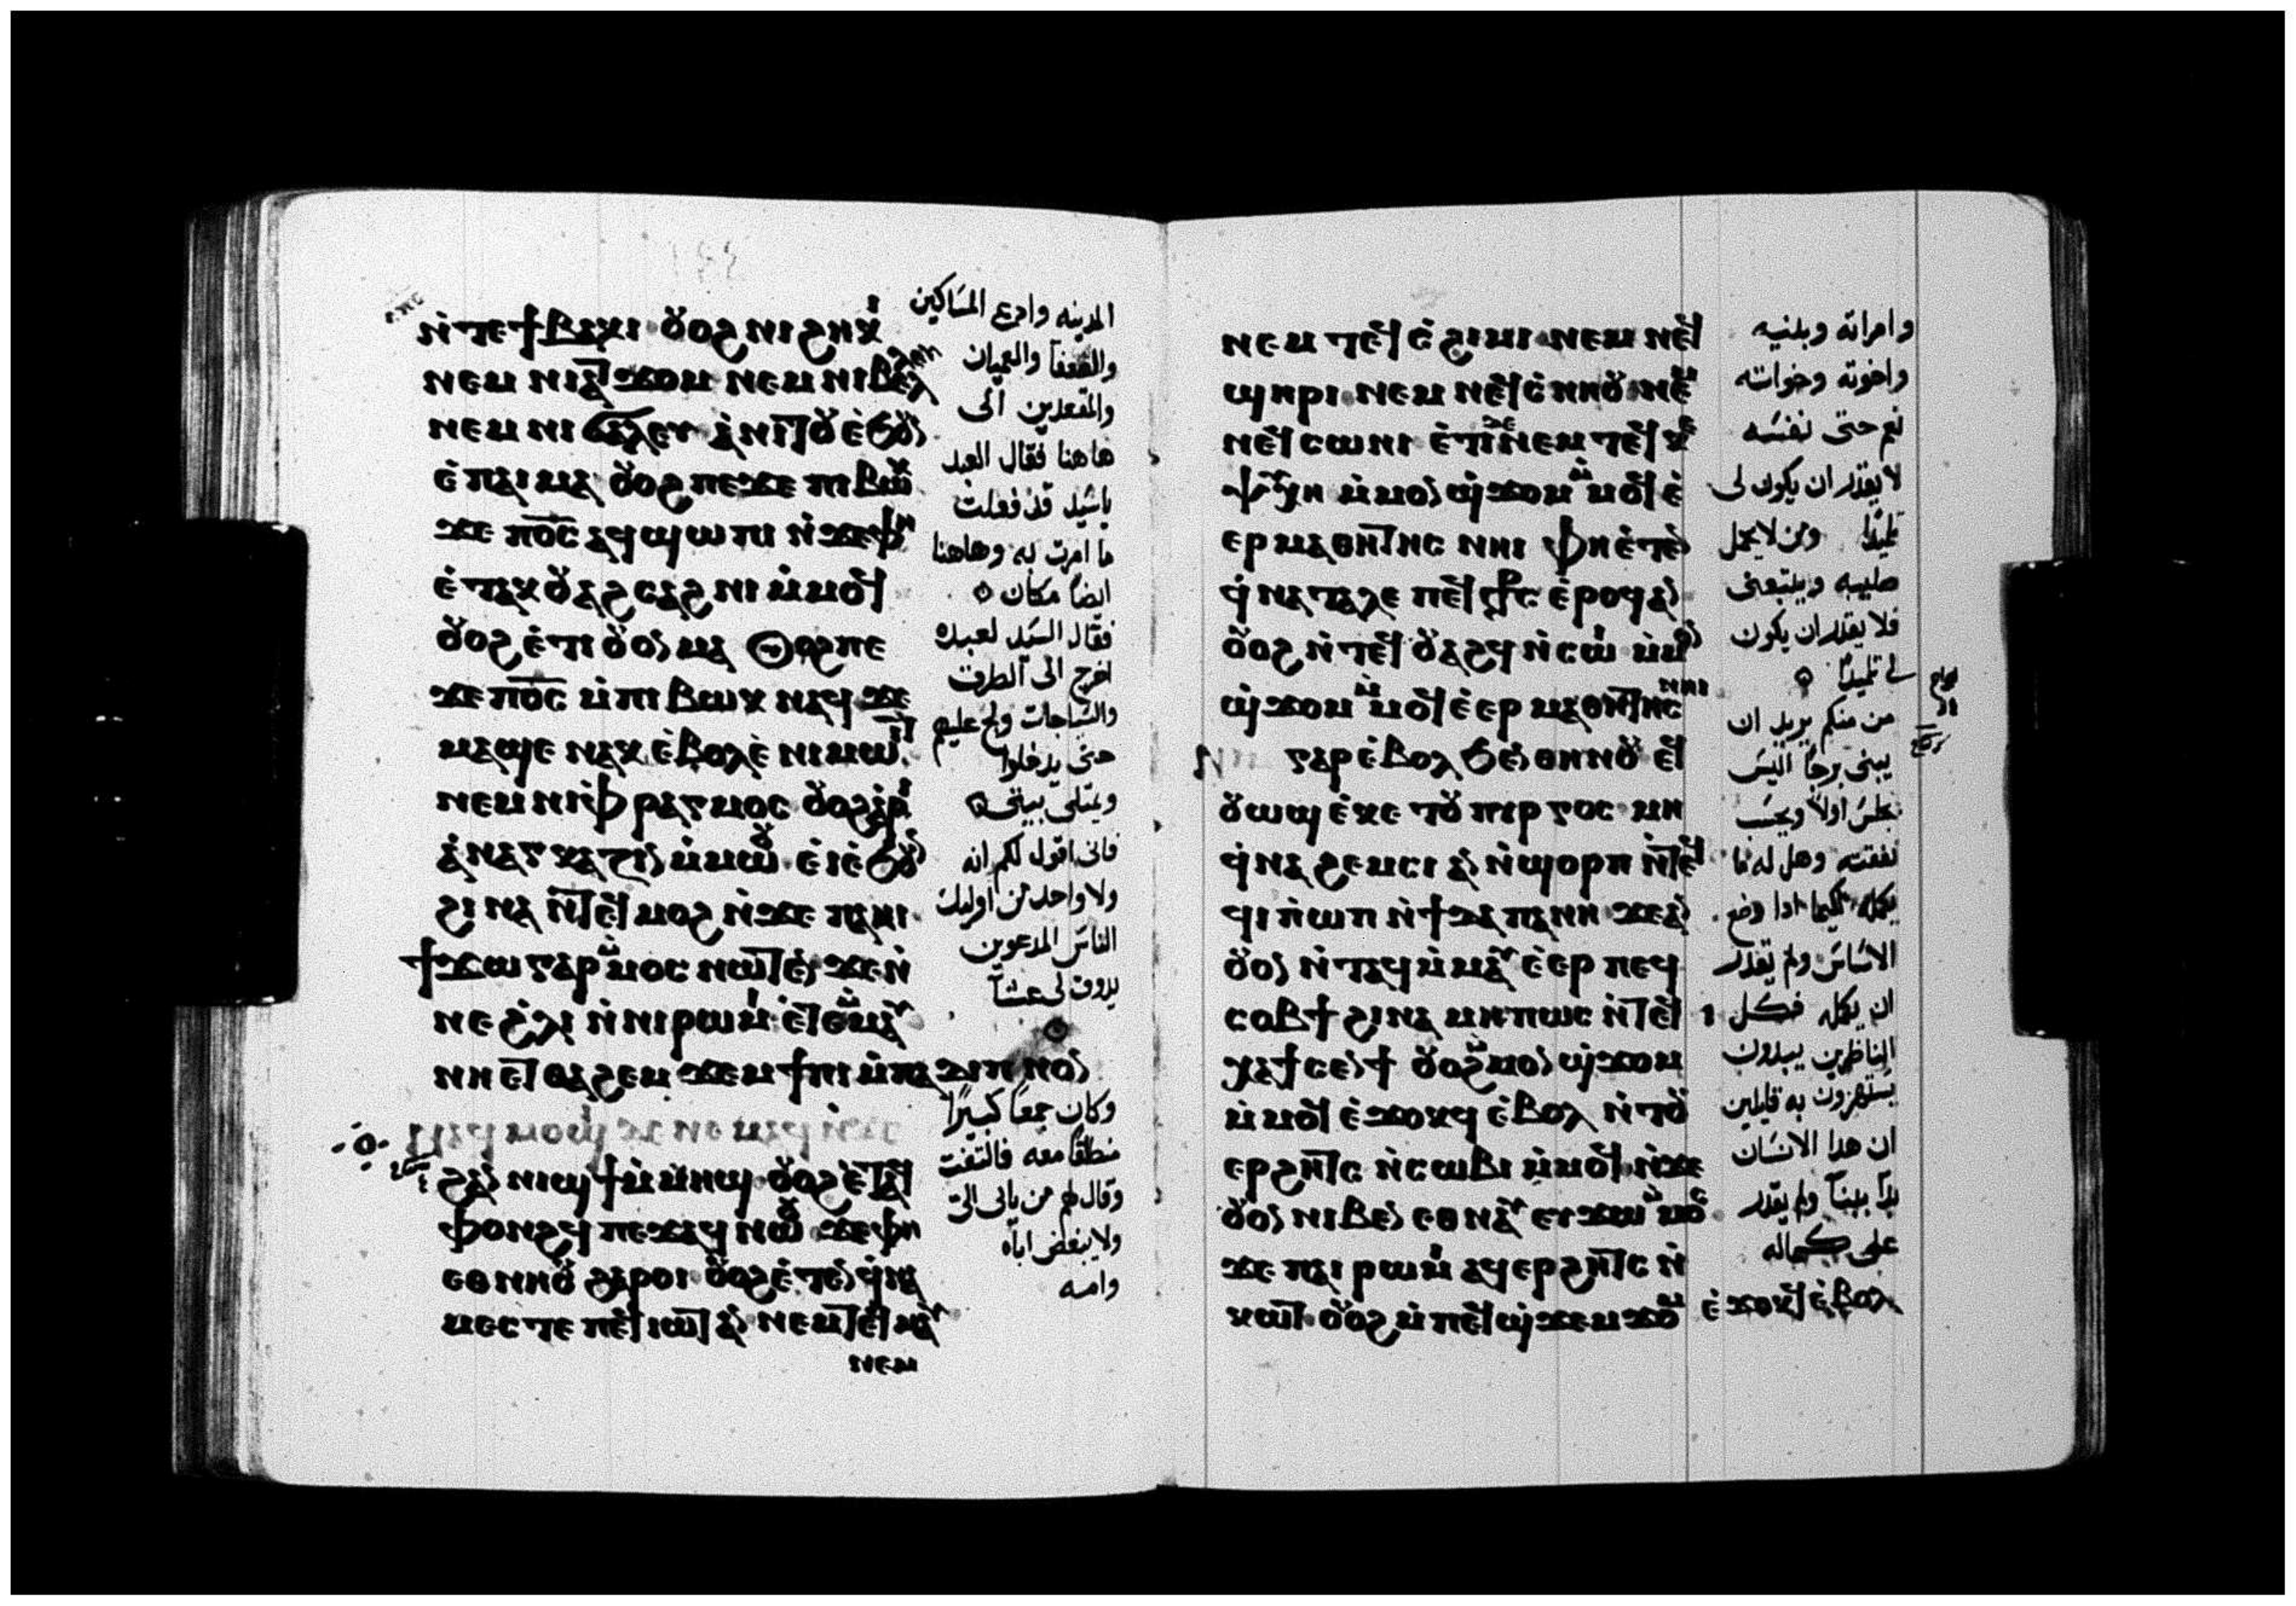 ⲛ̀ⲧⲉϯⲃⲁⲕⲓ ⲟⲩⲟϩ ⲛⲓϩⲏⲕⲓ
ⲛⲉⲙ ⲛⲓⲁⲧϫⲟⲙ ⲛⲉⲙ ⲛⲓⲃⲉⲗⲗⲉⲩ
ⲛⲉⲙ ⲛⲓϭⲁⲗⲉⲩ ⲁ̀ⲛⲓⲧⲟⲩ ⲉ̀ϧⲟⲩⲛ
ⲉ̀ⲡⲁⲓⲙⲁ ⲟⲩⲟϩ ⲡⲉϫⲉ ⲡⲓⲃⲱⲕ
ϫⲉ ⲡⲟ̅ⲥ̅ ⲁϥϣⲱⲡⲓ ⲛ̀ϫⲉⲫⲏ
ⲉ̀ⲧⲁⲕⲟⲩⲁϩⲥⲁϩⲛⲓ ⲙ̀ⲙⲟϥ
ⲟⲩⲟϩ ⲉ̀ⲧⲓ ⲟⲩⲟⲛ ⲙⲁ ⲟⲩⲟϩ ⲡⲉ
ϫⲉ ⲡⲟ̅ⲥ̅ ⲙ̀ⲡⲓⲃⲱⲕ ⲛⲁϥ ϫⲉ
ⲙⲁϣⲉ ⲛⲁⲕ ⲉ̀ⲃⲟⲗ ⲉ̀ⲛⲓⲙⲱⲓⲧ
ⲛⲉⲙ ⲛⲓⲫⲣⲁⲅⲙⲟⲥ ⲟⲩⲟϩ ⲁ̀ⲣⲓ
ⲁ̀ⲛⲁⲅⲕⲁⲍⲓⲛ ⲙ̀ⲙⲱⲟⲩ ⲉ̀ⲓ ⲉ̀ϧⲟⲩⲛ
ϩⲓⲛⲁ ⲛ̀ⲧⲉϥⲙⲟϩ ⲛ̀ϫⲉ ⲡⲁⲏⲓ
ϯϫⲱ ⲅⲁⲣ ⲙ̀ⲙⲟⲥ ⲛⲱⲧⲉⲛ ϫⲉ ⲛ̀
ⲛⲉ ϩ̀ⲗⲓ ⲛ̀ⲛⲓⲣⲱⲙⲓ ⲉ̀ⲧⲉⲙ̀ⲙⲁⲩ
ⲛⲏⲉⲧⲑⲁϩⲉⲙ ϫⲉⲙϯⲡⲓ ⲙ̀ⲡⲁⲇⲓⲡⲛⲟⲛ
ϩⲁⲛⲛⲓϣϯ ⲙ̀ⲙⲏϣ ⲟⲩⲟϩ ⲉ̀ⲧⲁϥ
ⲫⲟⲛϩϥ ⲡⲉϫⲁϥ ⲛⲱⲟⲩ ϫⲉ ⲫⲏ
ⲉⲑⲛⲏⲟⲩ ϩⲁⲣⲟⲓ ⲟⲩⲟϩ ⲉ̀ⲧⲉⲛϥ̀ⲛⲁ
ⲙⲉⲥⲧⲉ ⲡⲉϥⲓⲱⲧ ⲁⲛ ⲛⲉⲙ ⲧⲉϥⲙⲁⲩ
ⲛⲉⲙ
المدينه وادع المساكين
والضعفا والعميان
والمقعدين الى
هاهنا فقال العبد
ياسيد قد فعلت
ما امرت به وهاهنا
ايضا مكان
فقال السيد لعبده
اخرج الى الطرق
والسياجات ولج عليهم
حتى يدخلوا
ويمتلى بيتى
فانى اقول لكم انه
ولا واحد من اوليك
الناس المدعوين
يذوق لى عشآ
وكان جمعا كبيرا
منطلقا معه فالتفت
وقال لهم من ياتى الىّ
ولا يبغض اباه
وامه
ⲛⲉⲙ ⲧⲉϥⲥ̀ϩⲓⲙⲓ ⲛⲉⲙ ⲛⲉϥ
ϣⲏⲣⲓ ⲛⲉⲙ ⲛⲉϥⲥ̀ⲛⲏⲟⲩ ⲛⲉⲙ
ⲛⲉϥⲥⲱⲛⲓ ⲉ̀ⲧⲓ ⲇⲉ ⲛⲉⲙ ⲧⲉϥⲕⲉ
ⲯⲩⲭⲏ ⲙ̀ⲙⲟⲛ ϣ̀ϫⲟⲙ ⲙ̀ⲙⲟϥ ⲉ̀
ⲉⲣⲙⲁⲑⲏⲧⲏⲥ ⲛⲏⲓ ⲫⲏ ⲉ̀ⲧⲉⲛ
ϥ̀ⲛⲁⲧⲁⲗⲉ ⲡⲉϥⲥ̀ⲧⲁⲩⲣⲟⲥ ⲉ̀ⲣⲟϥ ⲁⲛ
ⲟⲩⲟϩ ⲛ̀ⲧⲉϥⲟⲩⲁϩϥ ⲛ̀ⲥⲱⲓ ⲙ̀ⲙⲟⲛ
ϣ̀ϫⲟⲙ ⲙ̀ⲙⲟϥ ⲉ̀ⲉⲣⲙⲁⲑⲏⲧⲏⲥ ⲛⲏⲓ
ⲅⲁⲣ ⲉ̀ⲃⲟⲗ ϧⲉⲛ ⲑⲏⲛⲟⲩ ⲉϥ
ⲟⲩⲱϣ ⲉ̀ⲕⲉⲧ ⲟⲩⲡⲓⲣⲅⲟⲥ ⲙⲏ
ϥ̀ⲛⲁϩⲉⲙⲥⲓ ⲁⲛ ⲛ̀ϣⲟⲣⲡ ⲛ̀ⲧⲉϥ
ϥⲓⲡ̀ⲱⲡ ⲛ̀ϯⲇⲁⲡⲁⲛⲏ ϫⲉ ⲁⲛ
ⲟⲩⲟⲛ ⲛ̀ⲧⲁϥ ⲙ̀ⲙⲁⲩ ⲉ̀ⲉⲣⲡⲉϥ
ⲥⲟⲃϯ ϩⲓⲛⲁ ⲙⲏⲡⲱⲥ ⲛ̀ⲧⲉϥ
ⲭⲁϯⲥⲉⲛϯ ⲟⲩⲟϩ ⲙ̀ⲙⲟⲛ ϣ̀ϫⲟⲙ
ⲙ̀ⲙⲟϥ ⲉ̀ϫⲟⲕϥ ⲉ̀ⲃⲟⲗ ⲛ̀ⲧⲟⲩ
ⲉⲣϩⲏⲧⲥ ⲛ̀ⲥⲱⲃⲓ ⲙ̀ⲙⲟϥ ⲛ̀ϫⲉ
ⲟⲩⲟⲛ ⲛⲓⲃⲉⲛ ⲉⲑⲛⲁⲩ ⲉⲩϫⲱ ⲙ̀ⲙⲟⲥ
ϫⲉ ⲡⲁⲓⲣⲱⲙⲓ ⲁϥⲉⲣϩⲏⲧⲥ ⲛ̀
ⲕⲱⲧ ⲟⲩⲟϩ ⲙ̀ⲡⲉϥϣ̀ϫⲉⲙϫⲟⲙ ⲉ̀ϫⲟⲕϥ ⲉ̀ⲃⲟⲗ
وامراته وبنيه
واخوته وخواته
نعم حتى نفسه
لا يقدر ان يكون لى
تلميذا ومن لا يحمل
صليبه ويتبعنى
فلا يقدر ان يكون
لى تلميذا
من منكم يريد ان
يبنى برجا اليس
يجلس اولا ويحسب
نفقته وهل له ما
يكمله لكيما اذا وضع
الاساس ولم يقدر
ان يكمله فكل
الناظرين يبدون
يستهزون به قايلين
ان هذا الانسان
بدا يبنآ ولم يقدر
على كماله